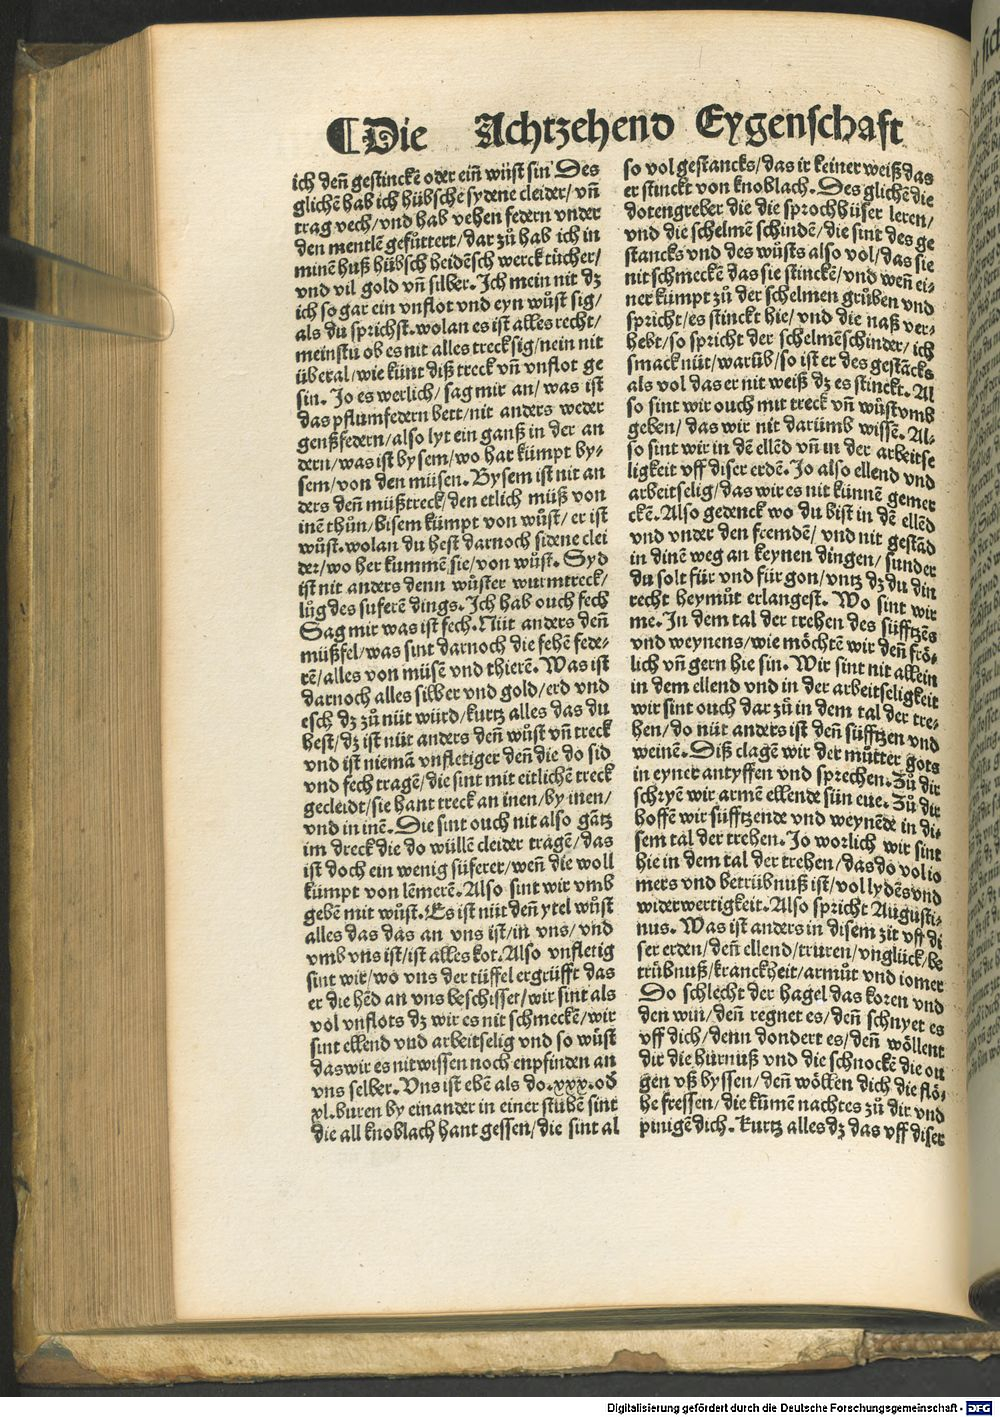 ¶Die Achtzehend Eygenschaft
ich deñ gestinckē oder eiñ wüst sin Des
glichē hab ich hübsche sydene cleider/ vñ
trag vech/vnd hab vehen federn vnder
den mentlē gefůttert/dar zů hab ich in
minē huß hübsch heidēsch werck tücher/
vnd vil gold vñ silber. Ich mein nit dz
ich so gar ein vnflot vnd eyn wůst sig/
als du sprichst. wolan es ist alles recht/
meinstu ob es nit alles treck sig/nein nit
überal/wie künt diß treck vñ vnflot ge
sin. Jo es werlich/ sag mir an/ was ist
das pflumfedern bett/nit anders weder
genßfedern/also lyt ein ganß in der an
dern/was ist bysem/wo har kümpt by-
sem/von den müsen. Bysem ist nit an
ders deñ müßtreck/den etlich müß von
inē thůn/bisem kümpt von wůst/ er ist
wůst. wolan du hest darnoch sidene clei
der/wo her kummē sie/von wůst. Syd
ist nit anders denn wůster wurmtreck/
lůg des suferē dings. Ich hab ouch fech
Sag mir was ist fech. Nüt anders deñ
müßfel/was sint darnoch die fehē fede-
rē/alles von müsen vnd thierē. Was ist
darnoch alles silber vnd gold/erd vnd
esch dz zů nüt würd/kurtz alles das du
hest/dz ist nüt anders deñ wůst vñ treck
vnd ist niemā vnfletiger deñ die do sid
vnd fech tragē/die sint mit eitlichē treck
gecleidt/sie hant treck an inen/by inen/
vnd in inē. Die sint ouch nit also gātz
im dreck die do wüllē cleider tragē/das
ist doch ein wenig süferer/weñ die woll
kümpt von lēmerē. Also sint wir vmb
gebē mit wůst. Es ist nüt deñ ytel wůst
alles das das an vns ist/in vns/ vnd
vmb vns ist/ist alles kot. Also vnfletig
sint wir/wo vns der tüffel ergrüfft das
er die hēd an vns beschisset/wir sint als
vol vnflots dz wir es nit schmeckē/wir
sint ellend vnd arbeitselig vnd so wůst
das wir es nit wissen noch enpfinden an
vns selber. Vns ist ebē als do .xxx. od̄
xl. buren by einander in einer stubē sint
die all knoblach hant gessen/die sint al
so vol gestancks/das ir keiner weiß das
er stinckt von knoblach. Des glichē die
dotengreber die die sprochhüser leren/
vnd die schelmē schindē/die sint des ge
stancks vnd des wůsts also vol/das sie
nit schmeckē das sie stinckē/vnd weñ ei-
ner kumpt zů der schelmen grůben vnd
spricht/es stinckt hie/ vnd die naß ver-
hebt/so spricht der schelmēschinder/ ich
smack nüt/warüb/so ist er des gestācks
als vol das er nit weiß dz es stinckt. Al
so sint wir ouch mit treck vñ wůst vmb
geben/ das wir nit darümb wissē. Al-
so sint wir in dē ellēd vñ in der arbeitse
ligkeit vff diser erdē. Jo also ellend vnd
arbeitselig/das wir es nit künnē gemer
ckē. Also gedenck wo du bist in dē ellēd
vnd vnder den fremdē/ vnd nit gestād
in dinē weg an keynen dingen/ sunder
du solt für vnd für gon/vntz dz du din
recht heymůt erlangest. Wo sint wir
me. In dem tal der trehen des süfftzēs
vnd weynens/wie möchtē wir deñ frö-
lich vñ gern hie sin. Wir sint nit allein
in dem ellend vnd in der arbeitseligkeit
wir sint ouch dar zů in dem tal der tre-
hen/do nüt anders ist deñ süfftzen vnd
weinē. Diß clagē wir der můtter gots
in eyner antyffen vnd sprechen. Zů dir
schryē wir armē ellende sün eue. Zů dir
hoffē wir süfftzende vnd weynēde in di-
sem tal der trehen. Jo worlich wir sint
hie in dem tal der trehen/das do vol io
mers vnd betrübnuß ist/vol lydēs vnd
widerwertigkeit. Also spricht Augusti-
nus. Was ist anders in disem zit vff di
ser erden/deñ ellend/truren/vnglück/be
trübnuß/kranckheit/armůt vnd iomer
Do schlecht der hagel das koren vnd
den win/deñ regnet es/deñ schnyet es
vff dich/denn dondert es/deñ wöllent
dir die hurnuß vnd die schnockē die ou
gen vß byssen/deñ wöllen dich die flö-
he fressen/die kūmē nachtes zů dir vnd
pinigē dich. Kurtz alles dz das vff diser
Digitalisierung gefördert durch die Deutsche Forschungsgemeinschaft - DFG